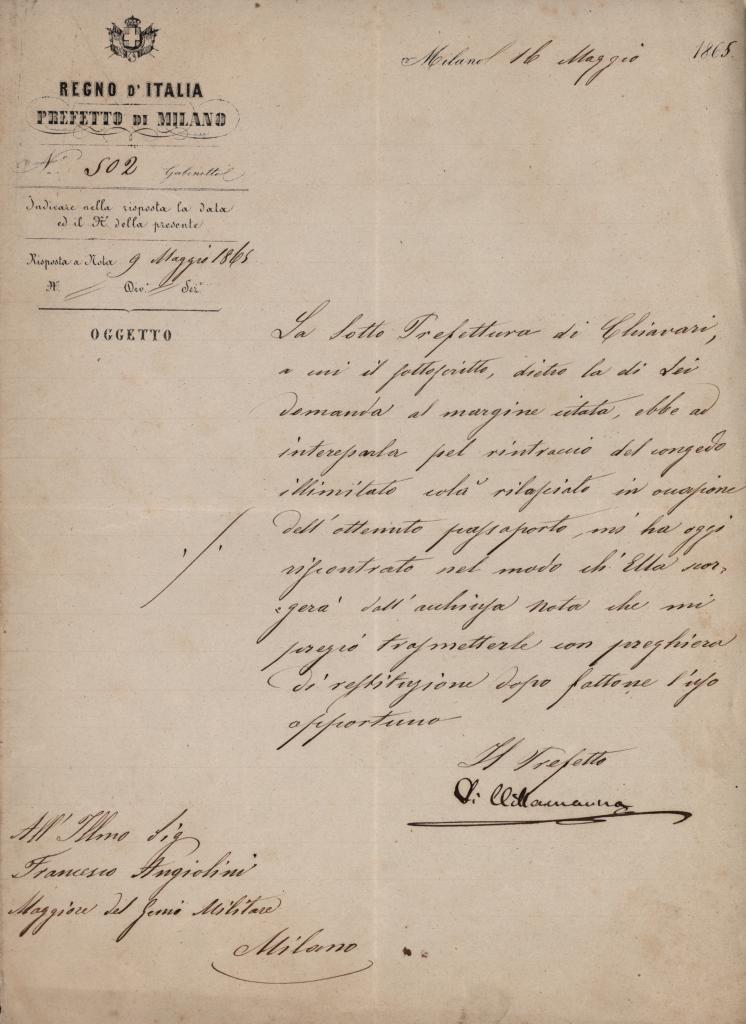 Milano 16 Maggio 1865.
REGNO D'ITALIA
PREFETTO DI MILANO
N.° 502 Gabinetto
Indicare nella risposta la data
ed il N.° della presente
Risposta a Nota 9 Maggio 1865
N.° Div.e Sez.e
OGGETTO
La Sotto Prefettura di Chiavari,
a cui il sottoscritto, dietro la di Lei
domanda al margine citata, ebbe ad
interessarla pel rintraccio del congedo
illimitato colà rilasciato in occasione
dell'ottenuto passaporto, mi ha oggi
riscontrato nel modo ch'Ella scor=
=gerà dall'acchiusa Nota che mi
pregio trasmetterle con preghiera
di restituzione dopo fattone l'uso
opportuno
Il Prefetto
Di Villamarina
All'Illmo Sig
Francesco Angiolini
Maggiore del Genio Militare
Milano